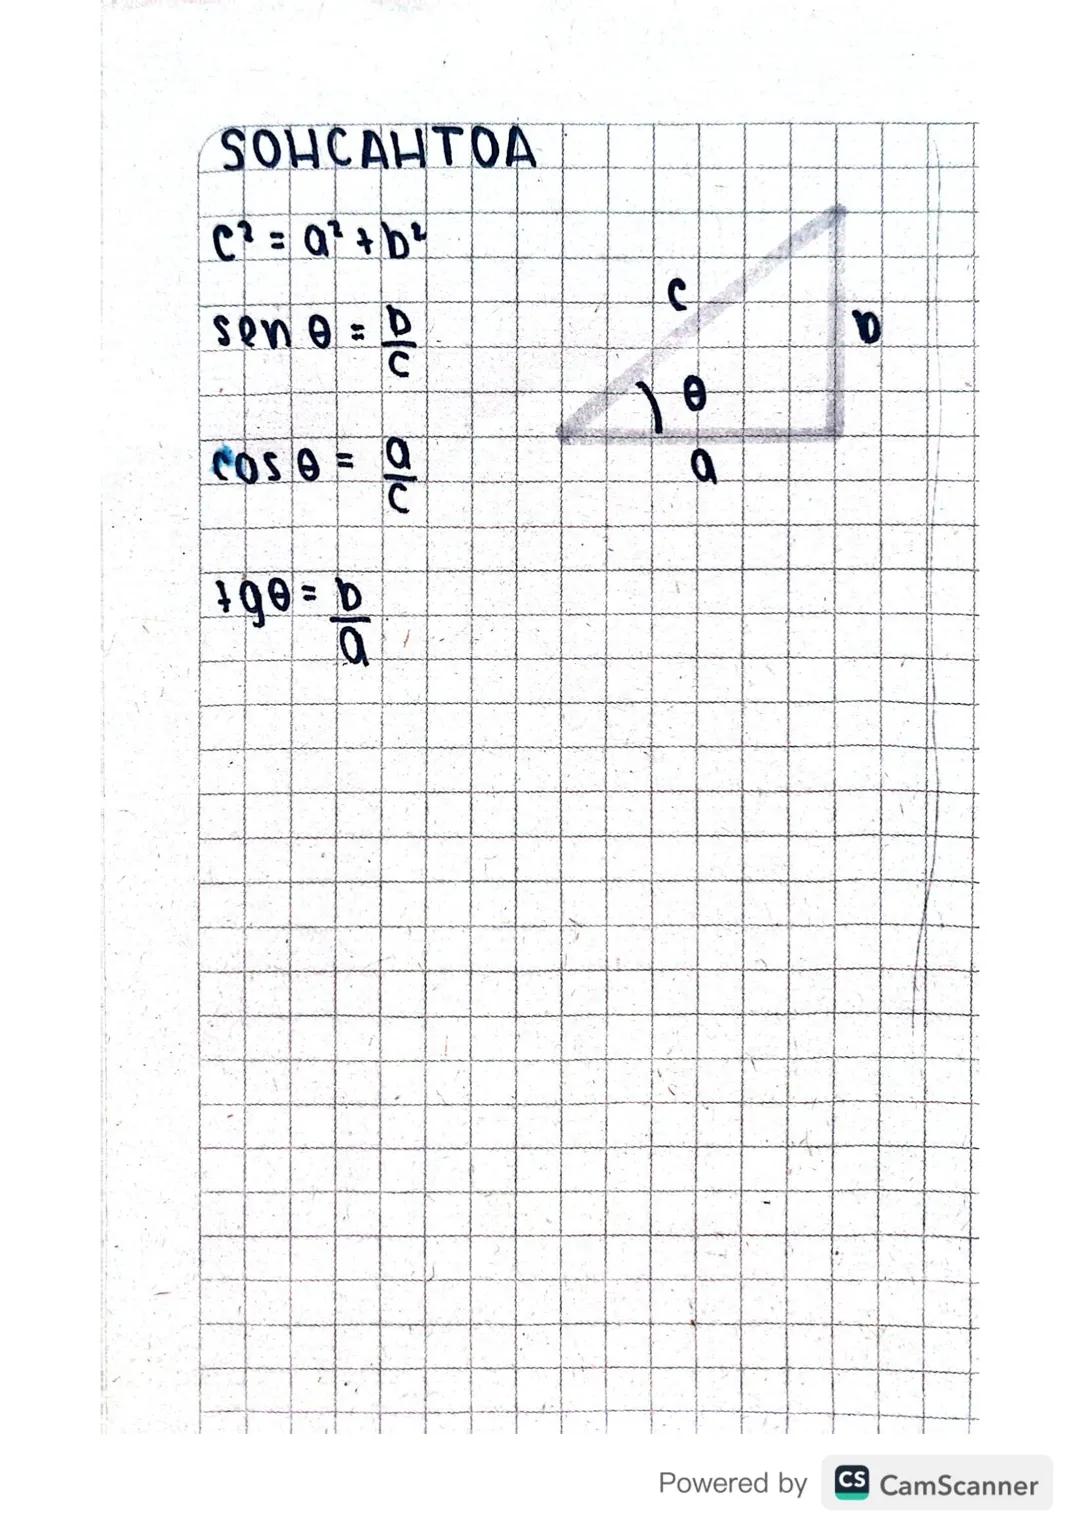 SOHCAHTOA
c² = a² + b²
sen θ = b/c
cos θ = a/c
tgθ = b/a
c
b
θ
a
Powered by CS CamScanner